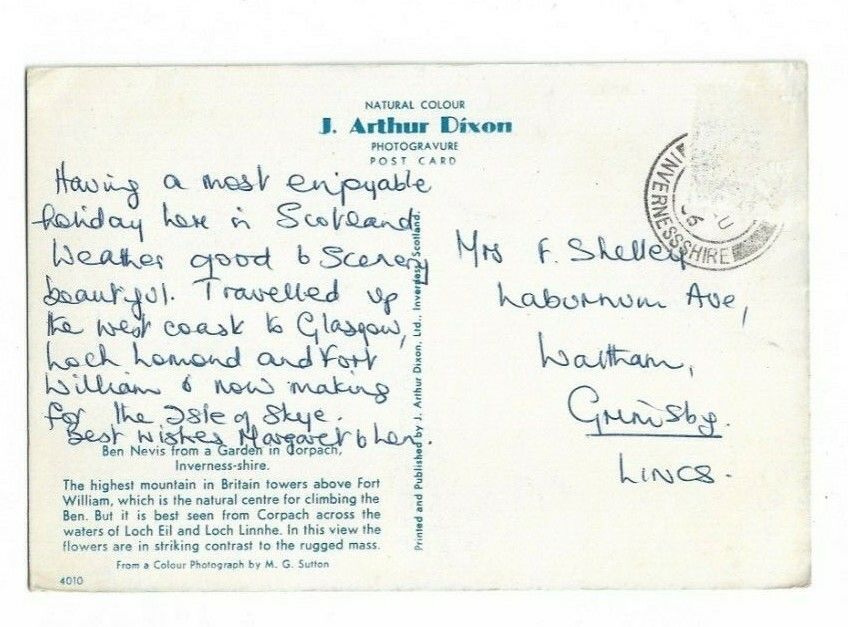 NATURAL COLOUR
J. Arthur Dixon
PHOTOGRAVURE
POST CARD
Having a most enjoyable
holiday here in Scotland.
Weather good & Scenery
beautiful. Travelled up
the west coast to Glasgow,
Loch Lomond and Fort
William & now making
for the Isle of Skye.
Best Wishes Margaret & Len.
Ben Nevis from a Garden in Corpach,
Inverness-shire.
The highest mountain in Britain towers above Fort
William, which is the natural centre for climbing the
Ben. But it is best seen from Corpach across the
waters of Loch Eil and Loch Linnhe. In this view the
flowers are in striking contrast to the rugged mass.
From a Colour Photograph by M. G. Sutton
4010
Printed and Published by J. Arthur Dixon, Ltd., Inverness, Scotland.
INVERNESSSHIRE
Mrs F. Shelley
Laburnum Ave,
Waltham,
Grimsby.
LINCS.